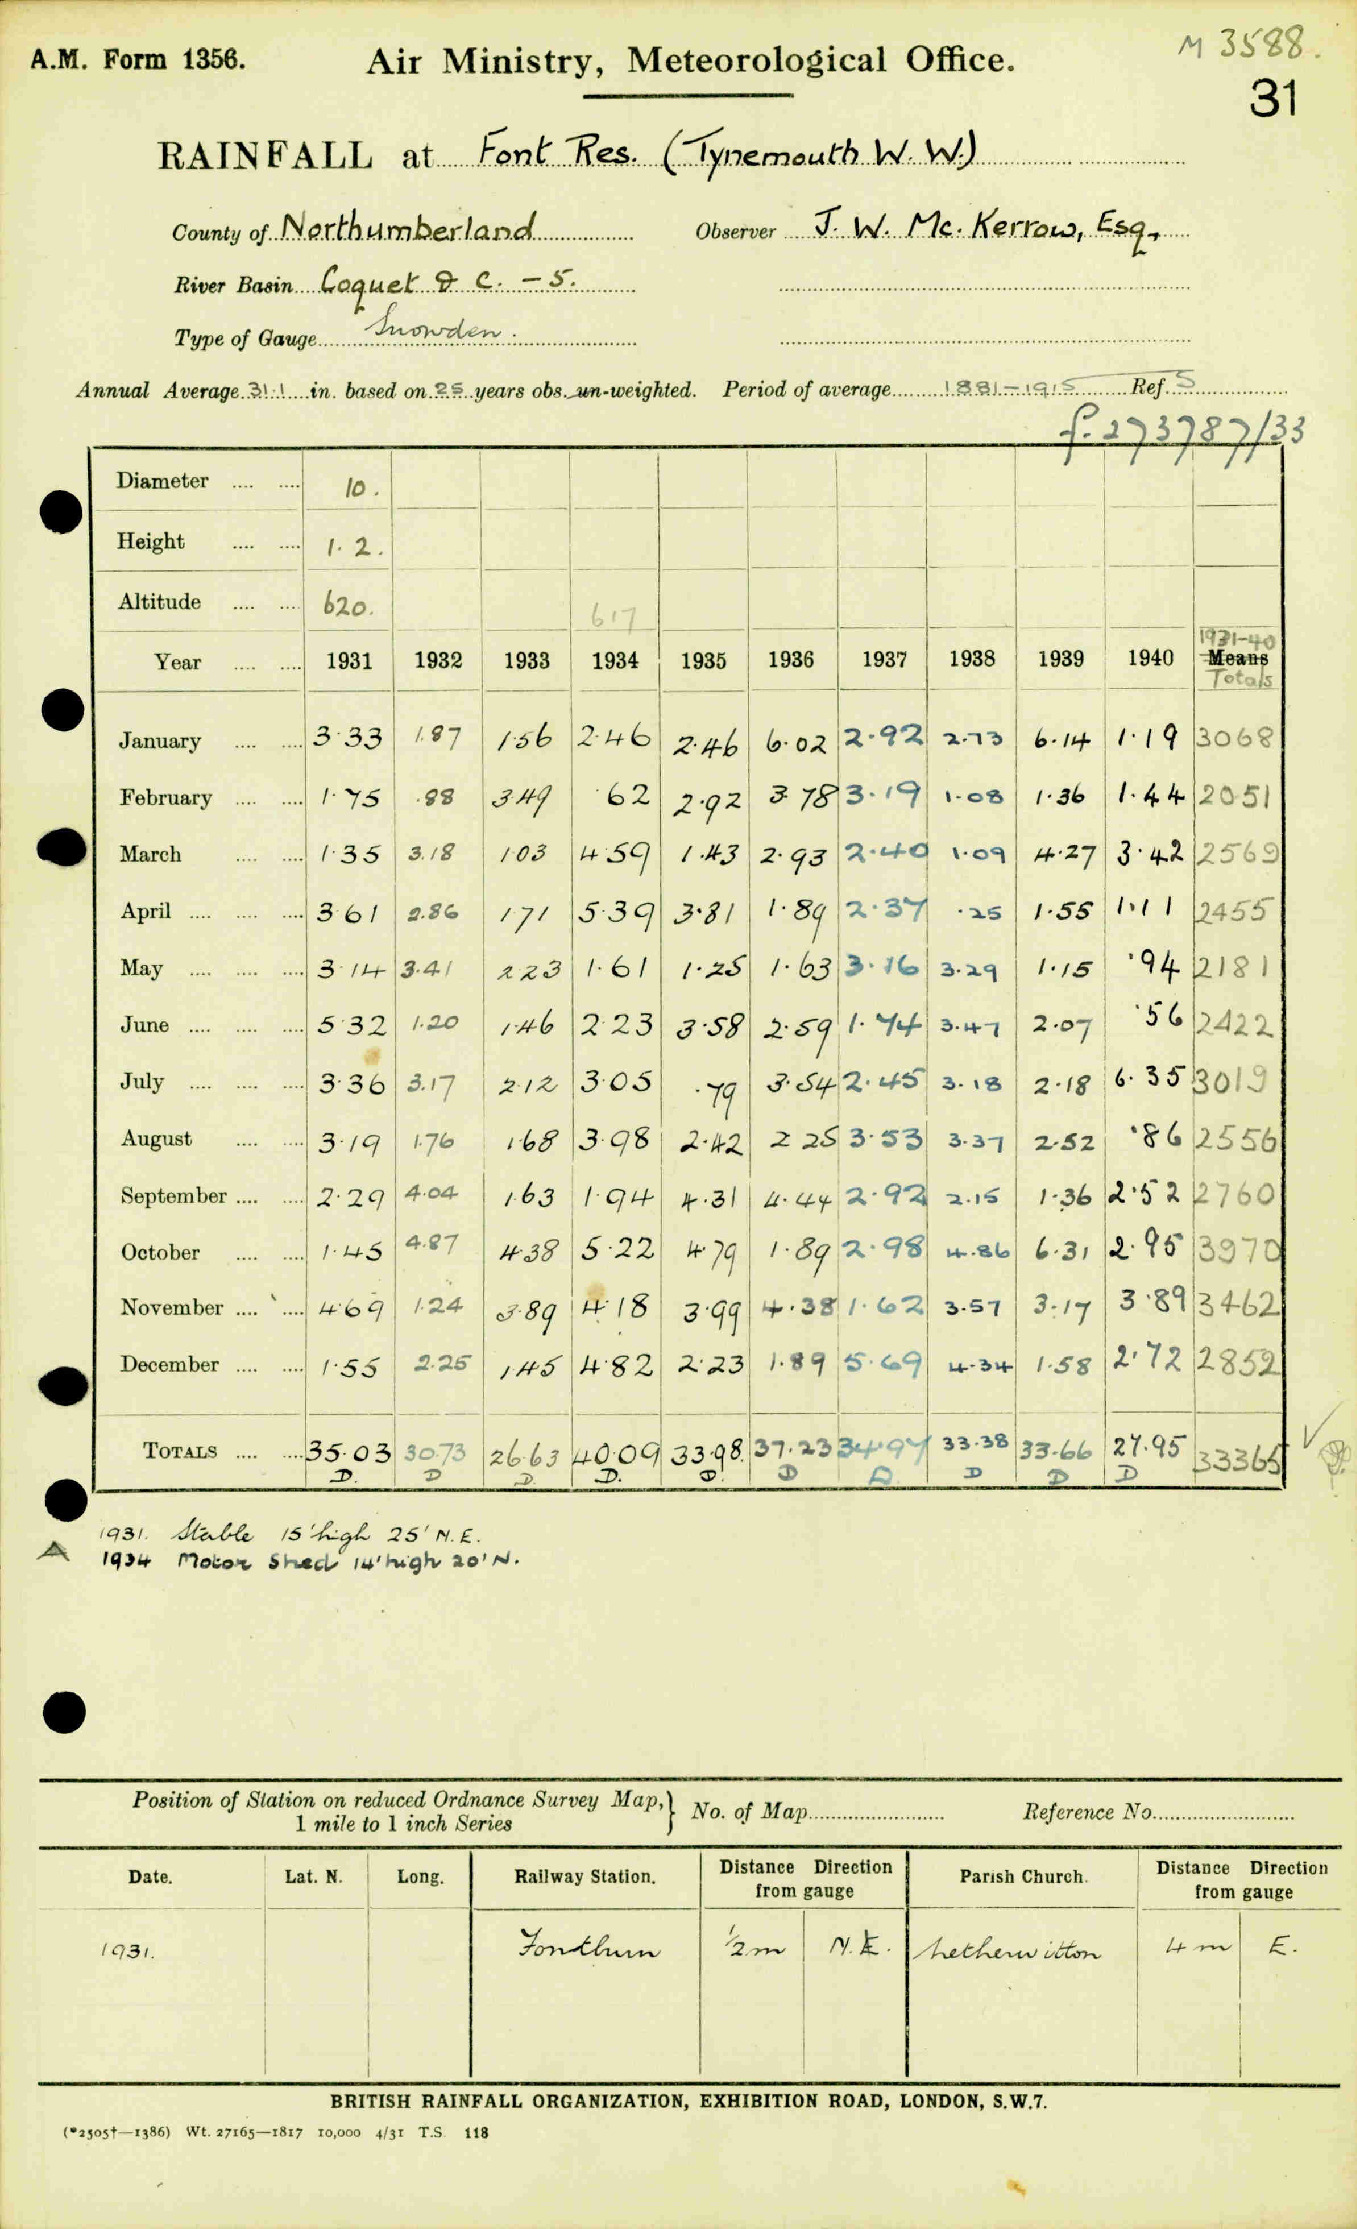 M 3588.
A.M. Form 1356. Air Ministry, Meteorological Office.
31
RAINFALL at Font Res. (Tynemouth W. W.)
County of Northumberland Observer J. W. Mc. Kerrow, Esq.,
River Basin Coquet & C. - 5.
Type of Gauge Snowden.
Annual Average 31.1 in. based on 25 years obs. un-weighted. Period of average 1881-1915 Ref. 5
f. 273787/33
Diameter .... .... 10.
Height .... .... 1. 2.
Altitude .... .... 620. 617
1931-40
Year .... .... 1931 1932 1933 1934 1935 1936 1937 1938 1939 1940 Means
Totals
January .... .... 3.33 1.87 1.56 2.46 2.46 6.02 2.92 2.73 6.14 1.19 3068
February .... .... 1.75 .88 3.49 .62 2.92 3.78 3.19 1.08 1.36 1.44 2051
March .... .... 1.35 3.18 1.03 4.59 1.43 2.93 2.40 1.09 4.27 3.42 2569
April .... .... .... 3.61 2.86 1.71 5.39 3.81 1.89 2.37 .25 1.55 1.11 2455
May .... .... .... 3.14 3.41 2.23 1.61 1.25 1.63 3.16 3.29 1.15 .94 2181
June .... .... .... 5.32 1.20 1.46 2.23 3.58 2.59 1.74 3.47 2.07 .56 2422
July .... .... .... 3.36 3.17 2.12 3.05 .79 3.54 2.45 3.18 2.18 6.35 3019
August .... .... 3.19 1.76 1.68 3.98 2.42 2.25 3.53 3.37 2.52 .86 2556
September .... .... 2.29 4.04 1.63 1.94 4.31 4.44 2.92 2.15 1.36 2.52 2760
October .... .... 1.45 4.87 4.38 5.22 4.79 1.89 2.98 4.86 6.31 2.95 3970
November .... .... 4.69 1.24 3.89 4.18 3.99 4.38 1.62 3.57 3.17 3.89 3462
December .... .... 1.55 2.25 1.45 4.82 2.23 1.89 5.69 4.34 1.58 2.72 2852
TOTALS .... .... 35.03 30.73 26.63 40.09 33.98 37.23 34.97 33.38 33.66 27.95 33365
D. D D. D. D. D D D D D
1931. Stable 15' high 25' N.E.
A 1934 Motor Shed 14' high 20' N.
Position of Station on reduced Ordnance Survey Map, No. of Map Reference No.
1 mile to 1 inch Series
Date. Lat. N. Long. Railway Station. Distance Direction from gauge Parish Church. Distance Direction from gauge
1931. Fontburn 1/2 m N.E. Netherwitton 4 m E.
BRITISH RAINFALL ORGANIZATION, EXHIBITION ROAD, LONDON, S.W.7.
(*2505†—1386) Wt. 27165—1817 10,000 4/31 T.S. 118